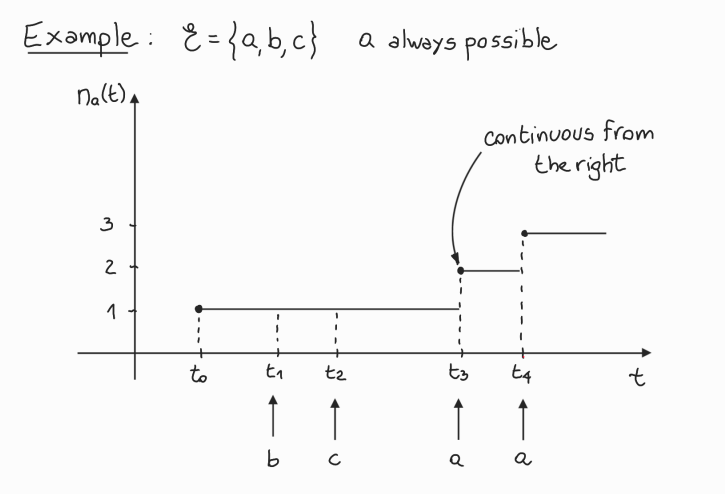 Example: ℰ = {a, b, c} a always possible
na(t)
continuous from
the right
3
2
1
t0 t1 t2 t3 t4 t
b c a a